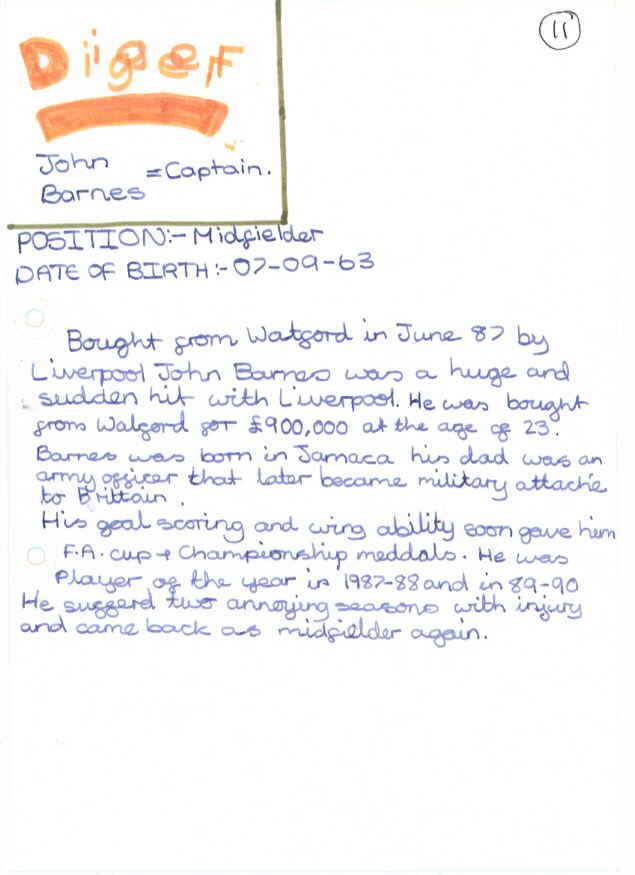 Digger
11
John
Barnes = Captain.
POSITION:- Midfielder
DATE OF BIRTH:- 07-09-63
Bought from Watford in June 87 by
Liverpool John Barnes was a huge and
sudden hit with Liverpool. He was bought
from Walford for £900,000 at the age of 23.
Barnes was born in Jamaca his dad was an
army officer that later became military attachè
to Brittain.
His goal scoring and wing ability soon gave him
F.A. cup + Championship meddals. He was
Player of the year in 1987-88 and in 89-90
He sufferd two annoying seasons with injury
and came back as midfielder again.